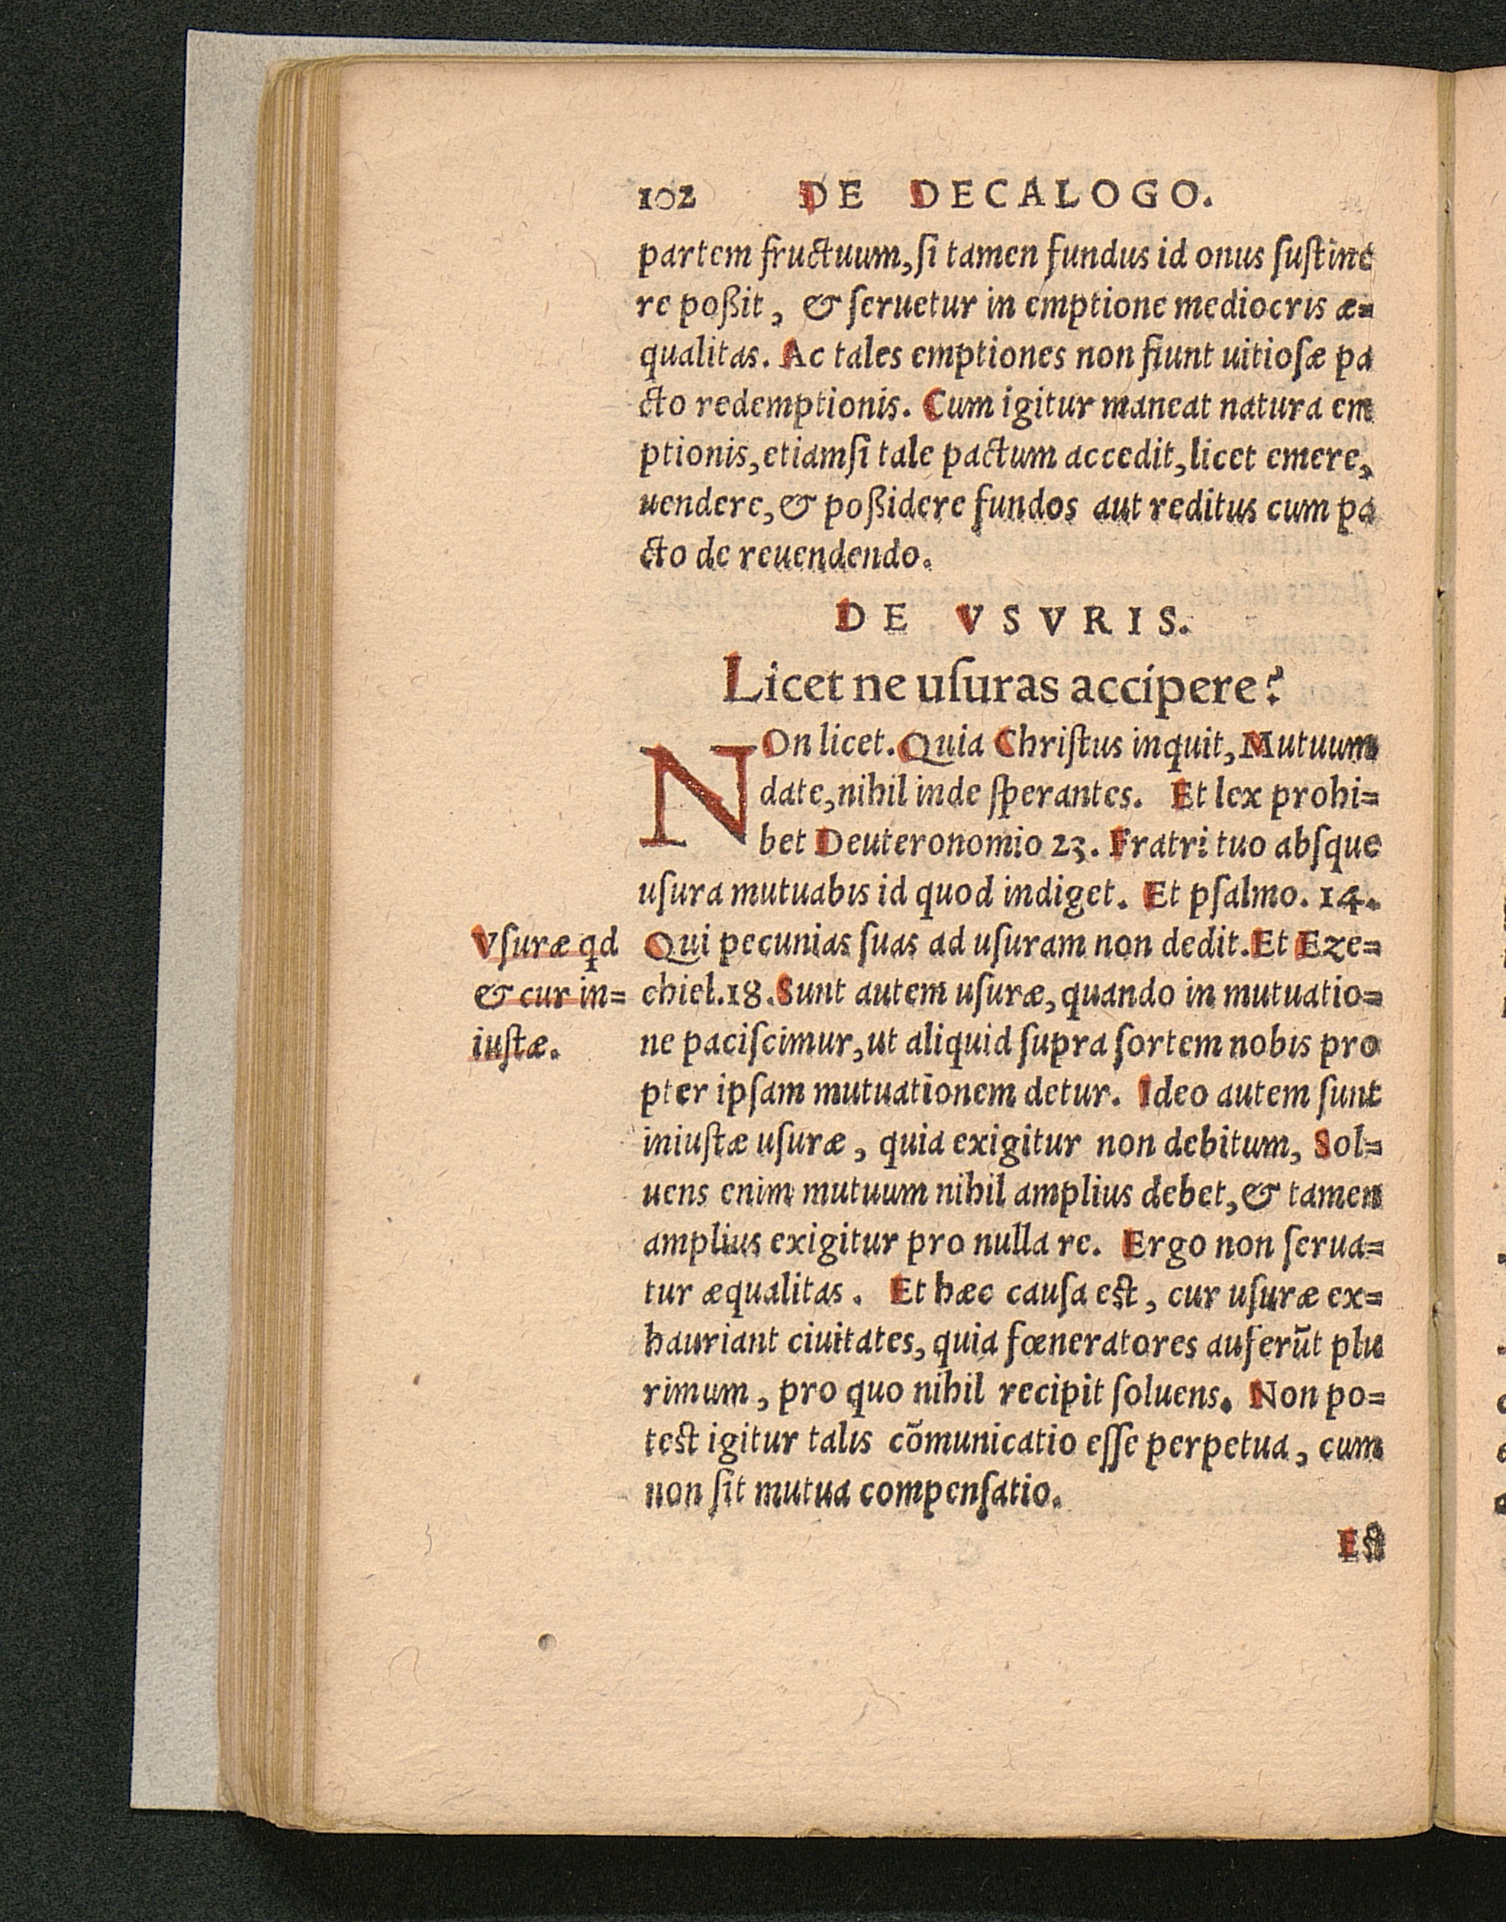 102 DE DECALOGO.
partem fructuum, ſi tamen fundus id onus ſuſtine
re poßit, & ſeruetur in emptione mediocris æ=
qualitas. Ac tales emptiones non fiunt uitioſæ pa
cto redemptionis. Cum igitur maneat natura em
ptionis, etiamſi tale pactum accedit, licet emere,
uendere, & poßidere fundos aut reditus cum pa
cto de reuendendo.
DE VSVRIS.
Licet ne uſuras accipere?
NOn licet. Quia Chriſtus inquit, Mutuum
date, nihil inde ſperantes. Et lex prohi=
bet Deuteronomio 23. Fratri tuo abſque
uſura mutuabis id quod indiget. Et pſalmo. 14.
Qui pecunias ſuas ad uſuram non dedit. Et Eze=
chiel. 18. Sunt autem uſuræ, quando in mutuatio=
ne paciſcimur, ut aliquid ſupra ſortem nobis pro
pter ipſam mutuationem detur. Ideo autem ſunt
iniuſtæ uſuræ, quia exigitur non debitum, Sol=
uens enim mutuum nihil amplius debet, & tamen
amplius exigitur pro nulla re. Ergo non ſerua=
tur æqualitas. Et hæc cauſa eſt, cur uſuræ ex=
hauriant ciuitates, quia fœneratores auferūt plu
rimum, pro quo nihil recipit ſoluens. Non po=
teſt igitur talis cōmunicatio eſſe perpetua, cum
non ſit mutua compenſatio.
Eſt
Vſuræ qd
& cur in=
iuſtæ.